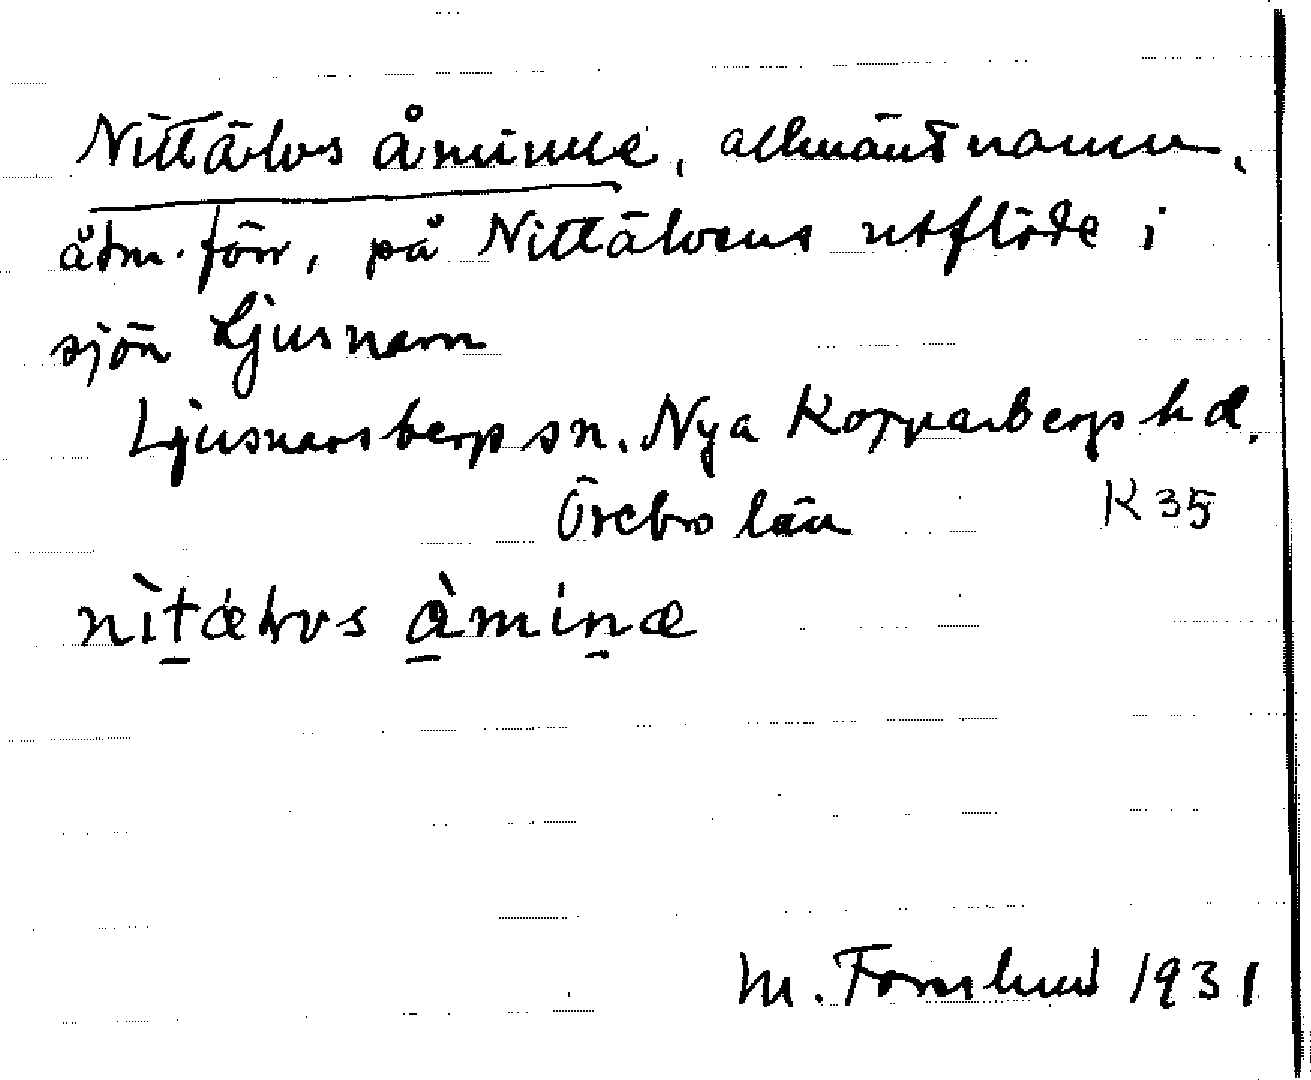 Nittälvs åminne, allmänt namn,
åtm. förr, på Nittälvens utflöde i
sjön Ljusnarn
Ljusnarsbergs sn. Nya Kopparbergs hd.
Örebro län K 35
nìtælvs àminæ
M. Fornslund 1931